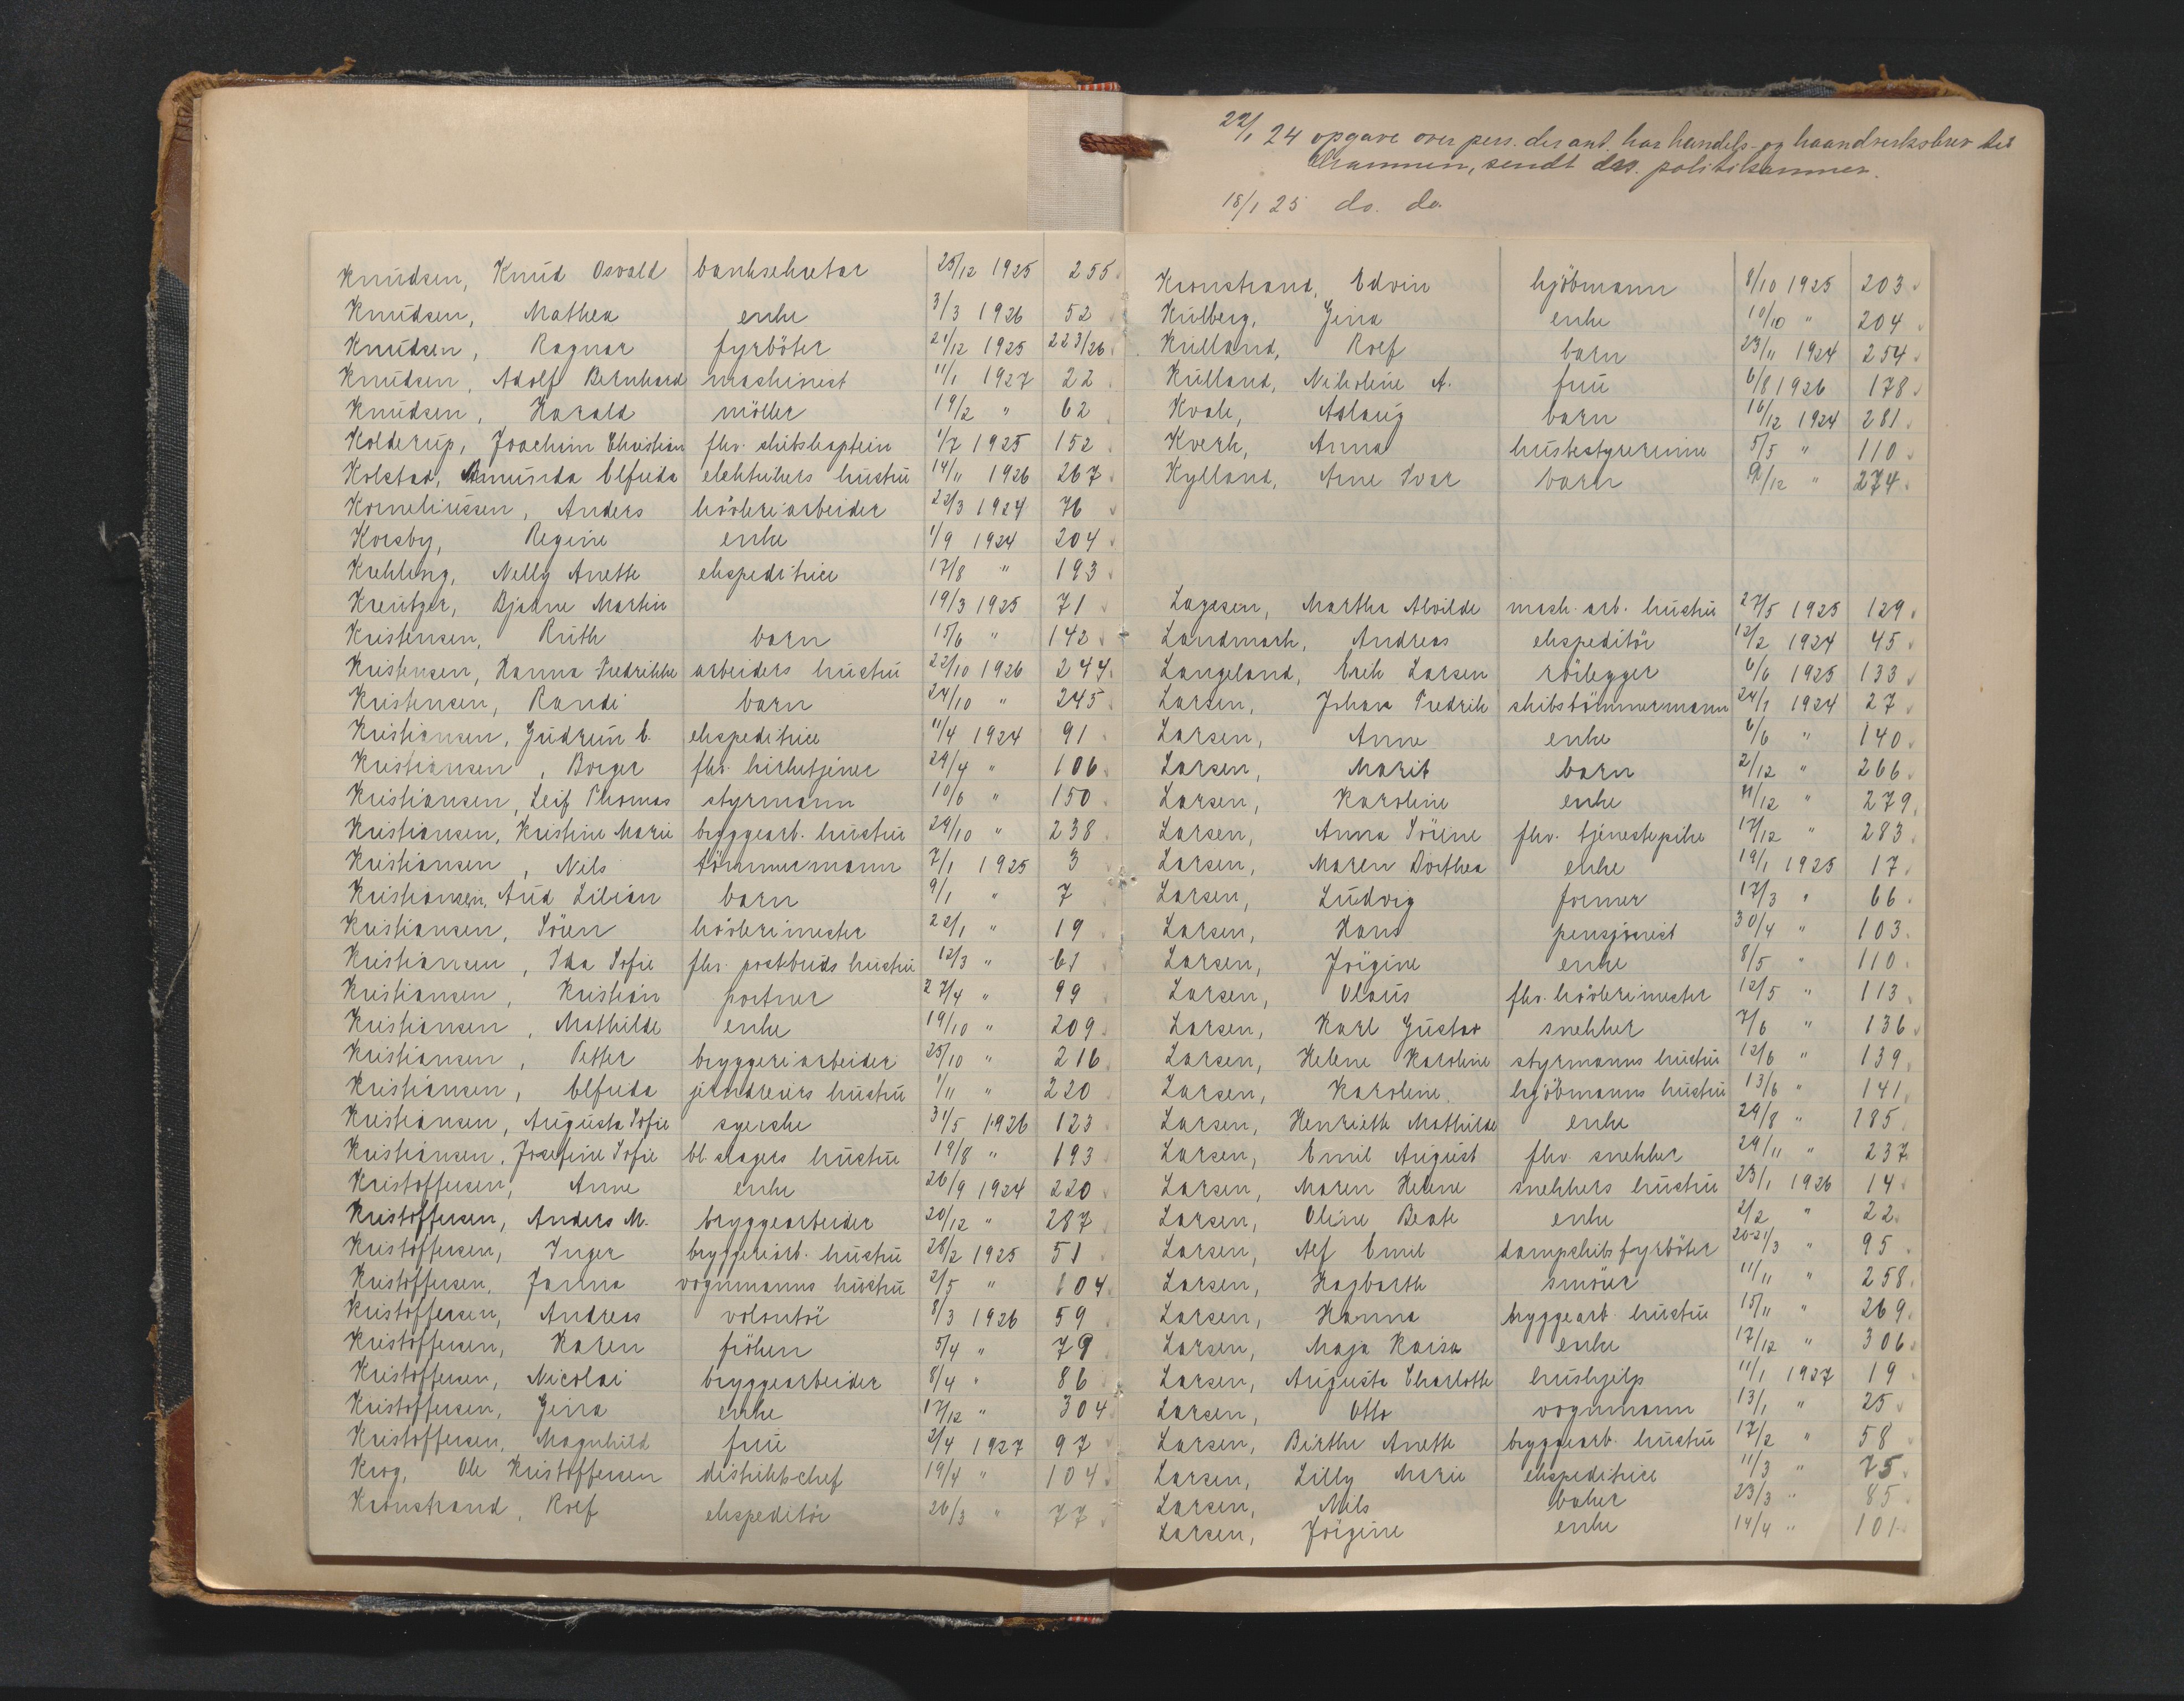 22/1 24 opgave over pers. der ant. har handels- og haandverksbrev til
Drammen, sendt drs. politikammer.
18/1 25 do. do.
Knudsen, Knud Osvald banksekretær 25/12 1925 255
Knudsen, Mathea enke 3/3 1926 52
Knudsen, Ragnar fyrböter 21/12 1925 223/26
Knudsen, Adolf Bernhard maskinist 11/1 1927 22
Knudsen, Harald möller 19/2 " 62
Kolderup, Joachim Christian fhv. skibskaptein 1/7 1925 152
Kolstad, Amunda Elfrida elektrikers hustru 14/11 1926 267
Korneliussen, Anders hövleriarbeider 22/3 1924 76
Korsby, Regine enke 1/9 1924 204
Krehling, Nelly Anette ekspeditrice 17/8 " 193
Kreutzer, Bjarne Martin 19/3 1925 71
Kristensen, Ruth barn 15/6 " 142
Kristensen, Hanna Fredrikke arbeiders hustru 22/10 1926 244
Kristensen, Randi barn 24/10 " 245
Kristiansen, Gudrun E. ekspeditrice 11/4 1924 91
Kristiansen, Borger fhv. kirketjener 29/4 " 106
Kristiansen, Leif Thomas styrmann 10/6 " 150
Kristiansen, Kristine Marie bryggearb. hustru 29/10 " 238
Kristiansen, Nils tömmermann 7/1 1925 3
Kristiansen, Aud Lilian barn 9/1 " 7
Kristiansen, Sören hövlerimester 22/1 " 19
Kristiansen, Ida Sofie fhv. postbuds hustru 12/3 " 61
Kristiansen, Kristian portner 27/4 " 99
Kristiansen, Mathilde enke 19/10 " 209
Kristiansen, Petter bryggeriarbeider 25/10 " 216
Kristiansen, Elfrida jerndreiers hustru 1/11 " 220
Kristiansen, Augusta Sofie syerske 31/5 1926 123
Kristiansen, Josefine Sofie bl. slagers hustru 19/8 " 193
Kristoffersen, Anne enke 26/9 1924 220
Kristoffersen, Anders M. bryggearbeider 20/12 " 287
Kristoffersen, Inger bryggeriarb. hustru 28/2 1925 51
Kristoffersen, Janna vognmanns hustru 2/5 " 104
Kristoffersen, Andreas volontör 8/3 1926 59
Kristoffersen, Karen fröken 5/4 " 79
Kristoffersen, Nicolai bryggearbeider 8/4 " 86
Kristoffersen, Gina enke 17/12 " 304
Kristoffersen, Magnhild fru 2/4 1927 97
Krog, Ole Kristoffersen distriktschef 19/4 " 104
Kronstrand, Rolf ekspeditör 26/3 " 77
Kronstrand, Edvin kjöbmann 8/10 1925 203
Kulberg, Gina enke 10/10 " 204
Kulland, Rolf barn 23/11 1924 254
Kulland, Nikoline A. fru 6/8 1926 178
Kvale, Aslaug barn 16/12 1924 281
Kverk, Anna husbestyrerinne 5/5 " 110
Kylland, Arne Ivar barn 9/12 " 274
Lagesen, Martha Alvilde mask. arb. hustru 27/5 1925 129
Landmark, Andreas ekspeditör 12/2 1924 45
Langeland, Erik Larsen rörlegger 6/6 1925 133
Larsen, Johan Fredrik skibstömmermann 24/1 1924 27
Larsen, Anne enke 6/6 " 140
Larsen, Marit barn 2/12 " 266
Larsen, Karoline enke 11/12 " 279
Larsen, Anna Sörine fhv. tjenestepike 17/12 " 283
Larsen, Maren Dorthea enke 19/1 1925 17
Larsen, Ludvig former 17/3 " 66
Larsen, Hans pensjonist 30/4 " 103
Larsen, Jörgine enke 8/5 " 110
Larsen, Olaus fhv. hövlerimester 12/5 " 113
Larsen, Karl Gustav snekker 7/6 " 136
Larsen, Helene Karoline styrmanns hustru 12/6 " 139
Larsen, Karoline kjöbmanns hustru 13/6 " 141
Larsen, Henriette Mathilde enke 29/8 " 185
Larsen, Emil August fhv. snekker 29/11 " 237
Larsen, Maren Helene snekkers hustru 23/1 1926 14
Larsen, Oline Beate enke 2/2 " 22
Larsen, Alf Emil dampskibsfyrböter 20-21/3 " 95
Larsen, Hagbarth smörer 11/11 " 258
Larsen, Hanna bryggearb. hustru 15/11 " 269
Larsen, Maja Kaisa enke 17/12 " 306
Larsen, Augusta Charlotte hushjelp 11/1 1927 19
Larsen, Otto vognmann 13/1 " 25
Larsen, Birthe Anette bryggearb. hustru 17/2 " 58
Larsen, Lilly Marie ekspeditrice 11/3 " 75
Larsen, Nils baker 23/3 " 85
Larsen, Jörgine enke 14/4 " 101